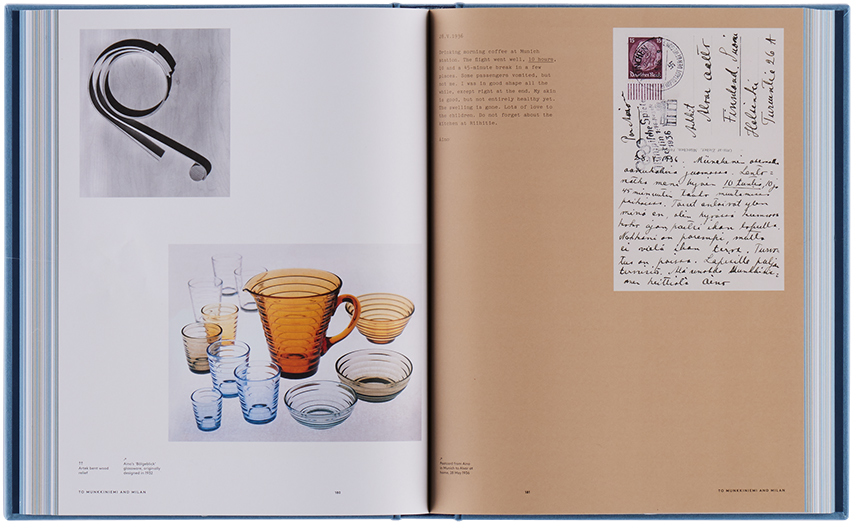 TT
Artek bent wood
relief
Aino's 'Bölgeblick'
glassware, originally
designed in 1932
TO MUNKKINIEMI AND MILAN
160
28.5.1936
Drinking morning coffee at Munich
station. The flight went well, 10 hours,
10 and a 45-minute break in a few
places. Some passengers vomited, but
not me. I was in good shape all the
while, except right at the end. My skin
is good, but not entirely healthy yet.
The swelling is gone. Lots of love to
the children. Do not forget about the
kitchen at Riihitie.
Aino
Postcard from Aino
in Munich to Alvar at
home, 28 May 1936
161
TO MUNKKINIEMI AND MILAN
15
15
Par Avion
1936
Arkkit
Alvar Aalto
Finnland, Suomi
Helsinki
Turuntie 26 A
28.5.1936. Münchenin asemalla
aamukahvia juomassa. Lento-
matka meni hyvin 10 tuntia, 10 ja
45 minuutin tauko muutamissa
paikoissa. Toiset antoivat ylen
minä en, olin hyvässä kunnossa
koko ajan, paitsi ihan lopulla.
Nahkani on parempi, mutta
ei vielä ihan terve. Turvo-
tus on poissa. Lapsille paljon
terveisiä. Aino